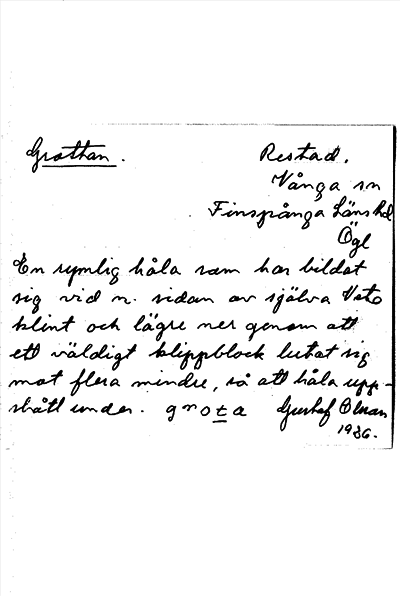 Grottan.
Restad.
Vånga sn
Finspånga Länshd
Ögl
En rymlig håla som har bildat
sig vid n. sidan av själva Vete
klint och lägre ner genom att
ett väldigt klippblock lutat sig
mot flera mindre, så att håla upp-
stått under. grota Gustaf Olsson
1936.